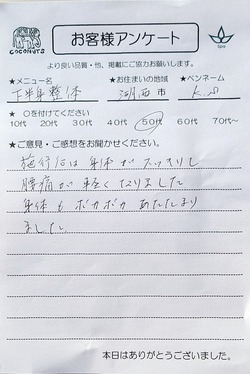 COCONUTS
お客様アンケート
Spa
より良い品質・他、掲載にご協力お願いします。
★メニュー名 ★お住まいの地域 ★ペンネーム
下半身整体 湖西市 K.S
★ ○を付けてください
10代 20代 30代 40代 50代 60代 70代~
★ご意見・ご感想をお聞かせください。
施術后は身体がスッキリし
腰痛が軽くなりました
身体もポカポカあたたまり
ました
本日はありがとうございました。